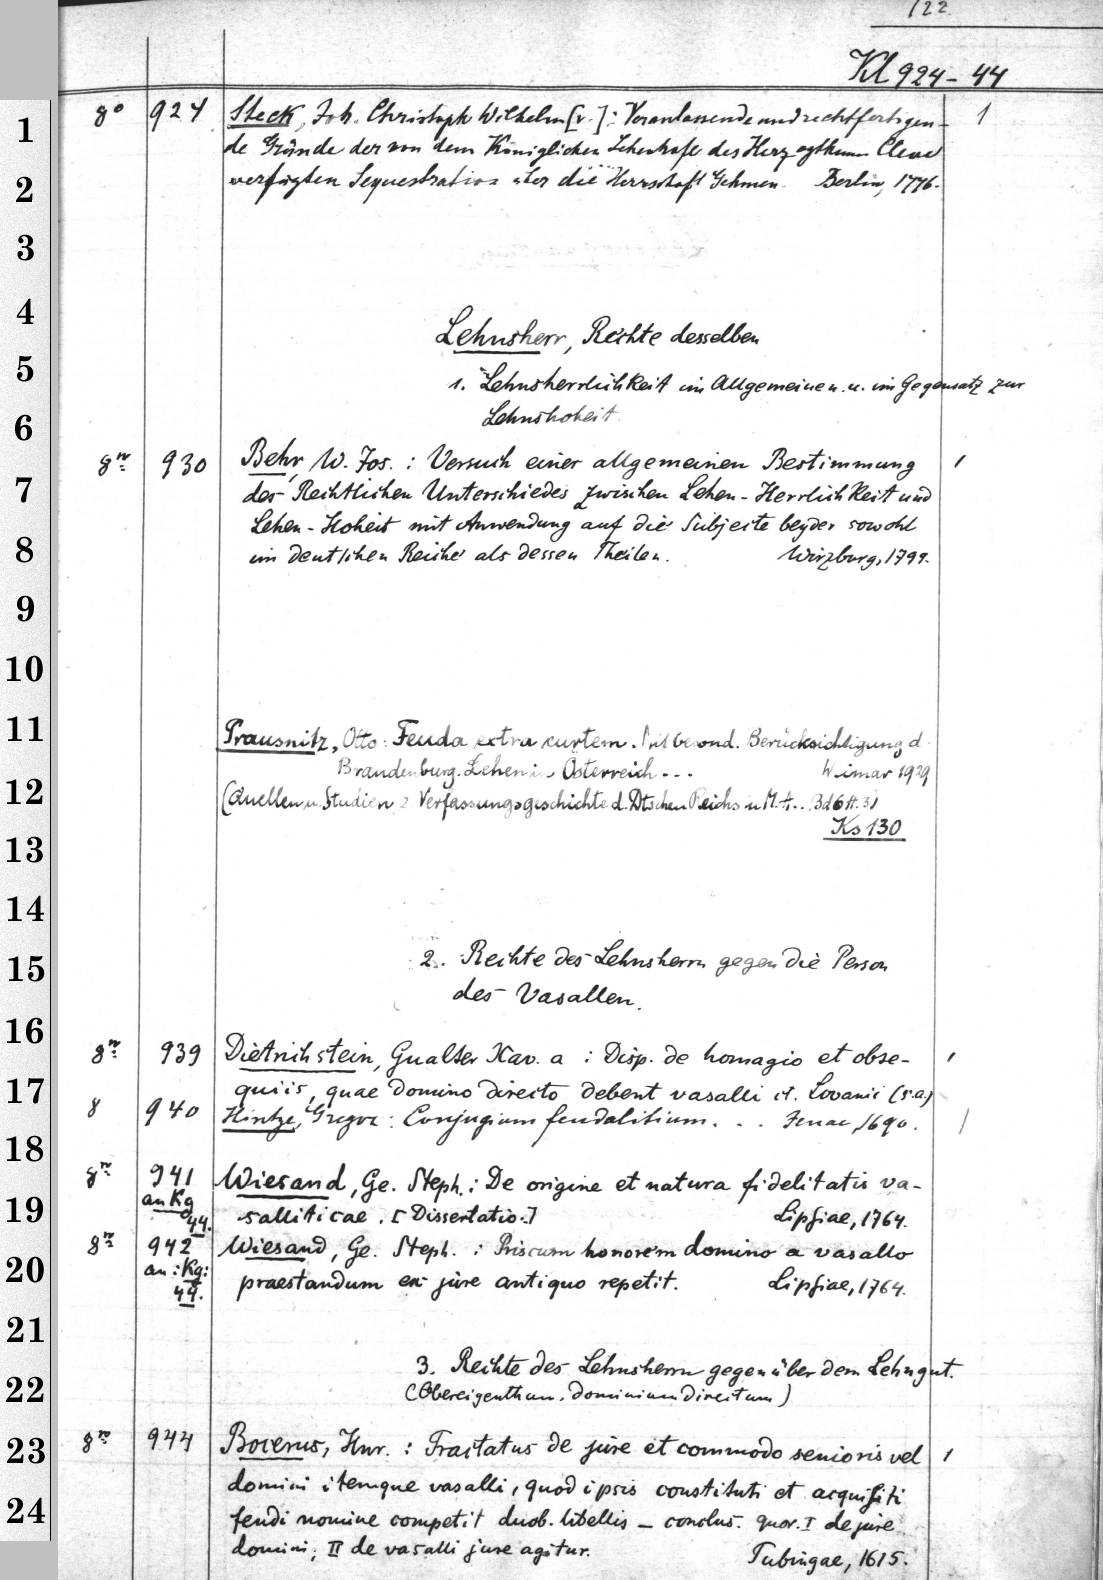 122
Kl 924-44
1
8° 924 Steck, Joh. Christoph Wilhelm [v.]: Veranlassende und rechtfertigen- 1
2
de Gründe der von dem Königlichen Lehenhofe des Herzogthums Cleve
verfügten Sequestration über die Herrschaft Gehmen. Berlin, 1776.
3
4
Lehnsherr, Rechte desselben
5
1. Lehnsherrlichkeit im Allgemeinen u. im Gegensatz zur
6
Lehnshoheit.
8° 930 Behr, W. Jos.: Versuch einer allgemeinen Bestimmung 1
7
des Rechtlichen Unterschiedes zwischen Lehen-Herrlichkeit und
Lehen-Hoheit mit Anwendung auf die Subjecte beyder sowohl
8
im deutschen Reiche als dessen Theilen. Wirzburg, 1799.
9
10
11
Prausnitz, Otto: Feuda extra curtem. Mit besond. Berücksichtigung d.
Brandenburg. Lehen in Österreich... Weimar 1929
12
(Quellen u. Studien z Verfassungsgeschichte d. Dtschen Reichs u M.A.. Bd 6 H. 3)
Ks 130
13
14
15
2. Rechte des Lehnsherrn gegen die Person
des Vasallen.
16
8° 939 Dietrichstein, Gualter Xav. a: Disp. de homagio et obse- 1
17
quiis, quae domino directo debent vasalli et. Lovanii (s.a.)
8 940 Hintze, Gregor: Conjugium feudalitium... Jenae, 1690. 1
18
8° 941 Wiesand, Ge. Steph.: De origine et natura fidelitatis va-
19
an Kg 44. salliticae. [Dissertatio.] Lipsiae, 1764.
8° 942 Wiesand, Ge. Steph.: Priscum honorem domino a vasallo
20
an: Kg: 44. praestandum ex jure antiquo repetit. Lipsiae, 1764.
21
3. Rechte des Lehnsherrn gegenüber dem Lehngut.
22
(Obereigenthum, dominium directum)
23
8° 944 Bocerus, Hnr.: Tractatus de jure et commodo senioris vel 1
domini itemque vasalli, quod ipsis constituti et acquisiti
24
feudi nomine competit duob. libellis – conclus. quor. I de jure
domini, II de vasalli jure agitur. Tubingae, 1615.